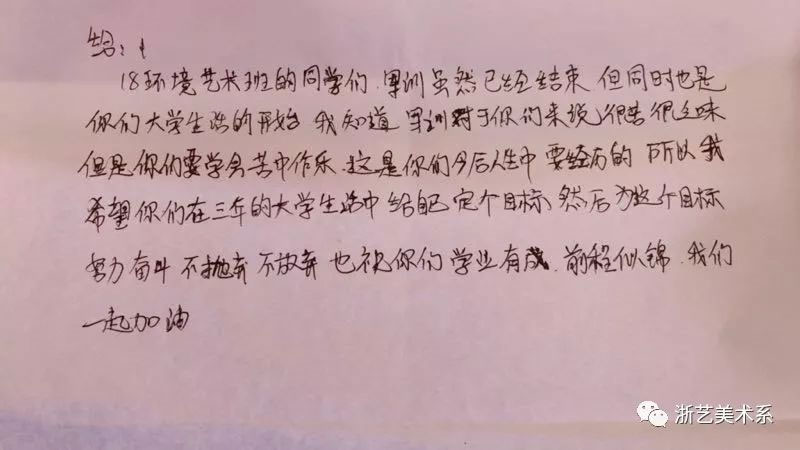 给:
18环境艺术班的同学们.军训虽然已经结束 但同时也是
你们大学生活的开始 我知道 军训对于你们来说很苦很乏味
但是你们要学会苦中作乐.这是你们今后人生中 要经历的 所以我
希望你们在三年的大学生活中 给自己定个目标,然后为这个目标
努力奋斗 不抛弃 不放弃 也祝你们学业有成.前程似锦.我们
一起加油
浙艺美术系